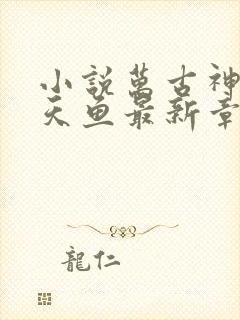 小說萬古神
天魚最新章
龍仁